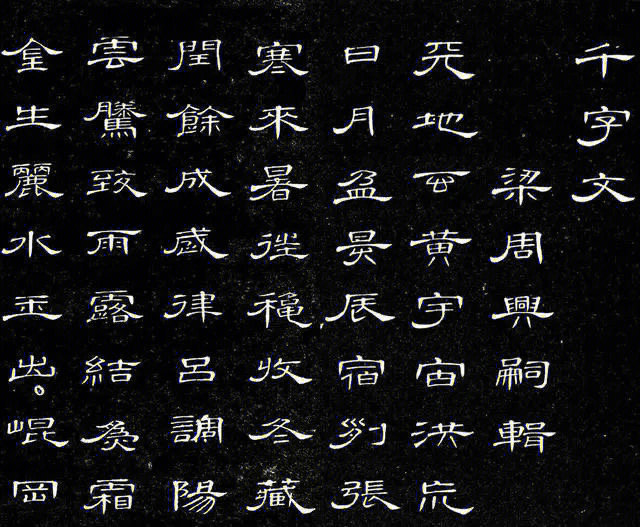 千字文
梁周興嗣輯
天地玄黃宇宙洪荒
日月盈昃辰宿列張
寒來暑往穐收冬藏
閏餘成歲律呂調陽
雲騰致雨露結為霜
金生麗水玉出崐岡